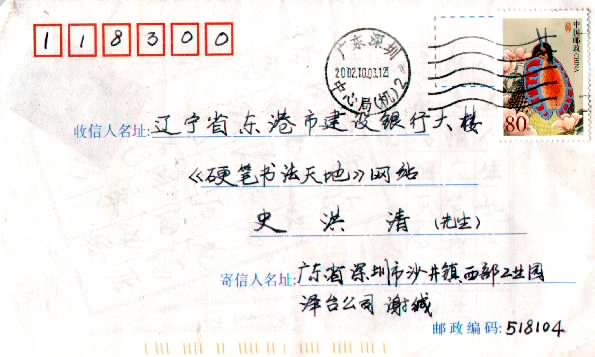 118300
广东深圳
2002.10.03.12
中心局(机)2
中国邮政 CHINA
80分
收信人名址:辽宁省东港市建设银行大楼
《硬笔书法天地》网站
史洪清(先生)
寄信人名址:广东省深圳市沙井镇西部工业园
泽台公司 谢诚
邮政编码:518104